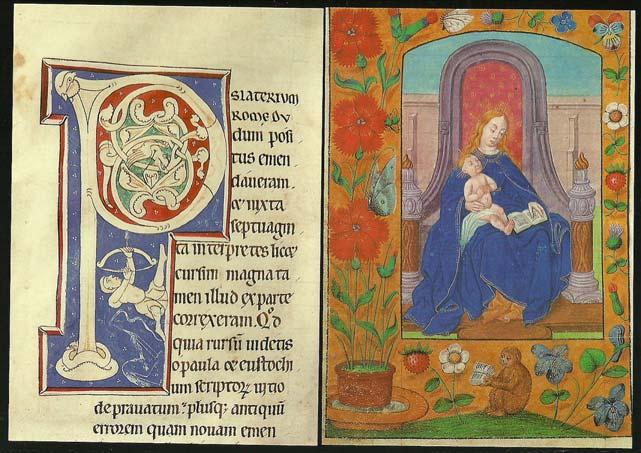 PSLATERIUM
ROME DU
dum posi
tus emen
daueram.
& iuxta
septuagin
ta interpretes licet
cursim magna ta
men illud ex parte
correxeram. Qd
quia rursum uidetis
o paula & eustochi
um scriptorum uitio
deprauatum plusq; antiquū
errorem quam nouam emen